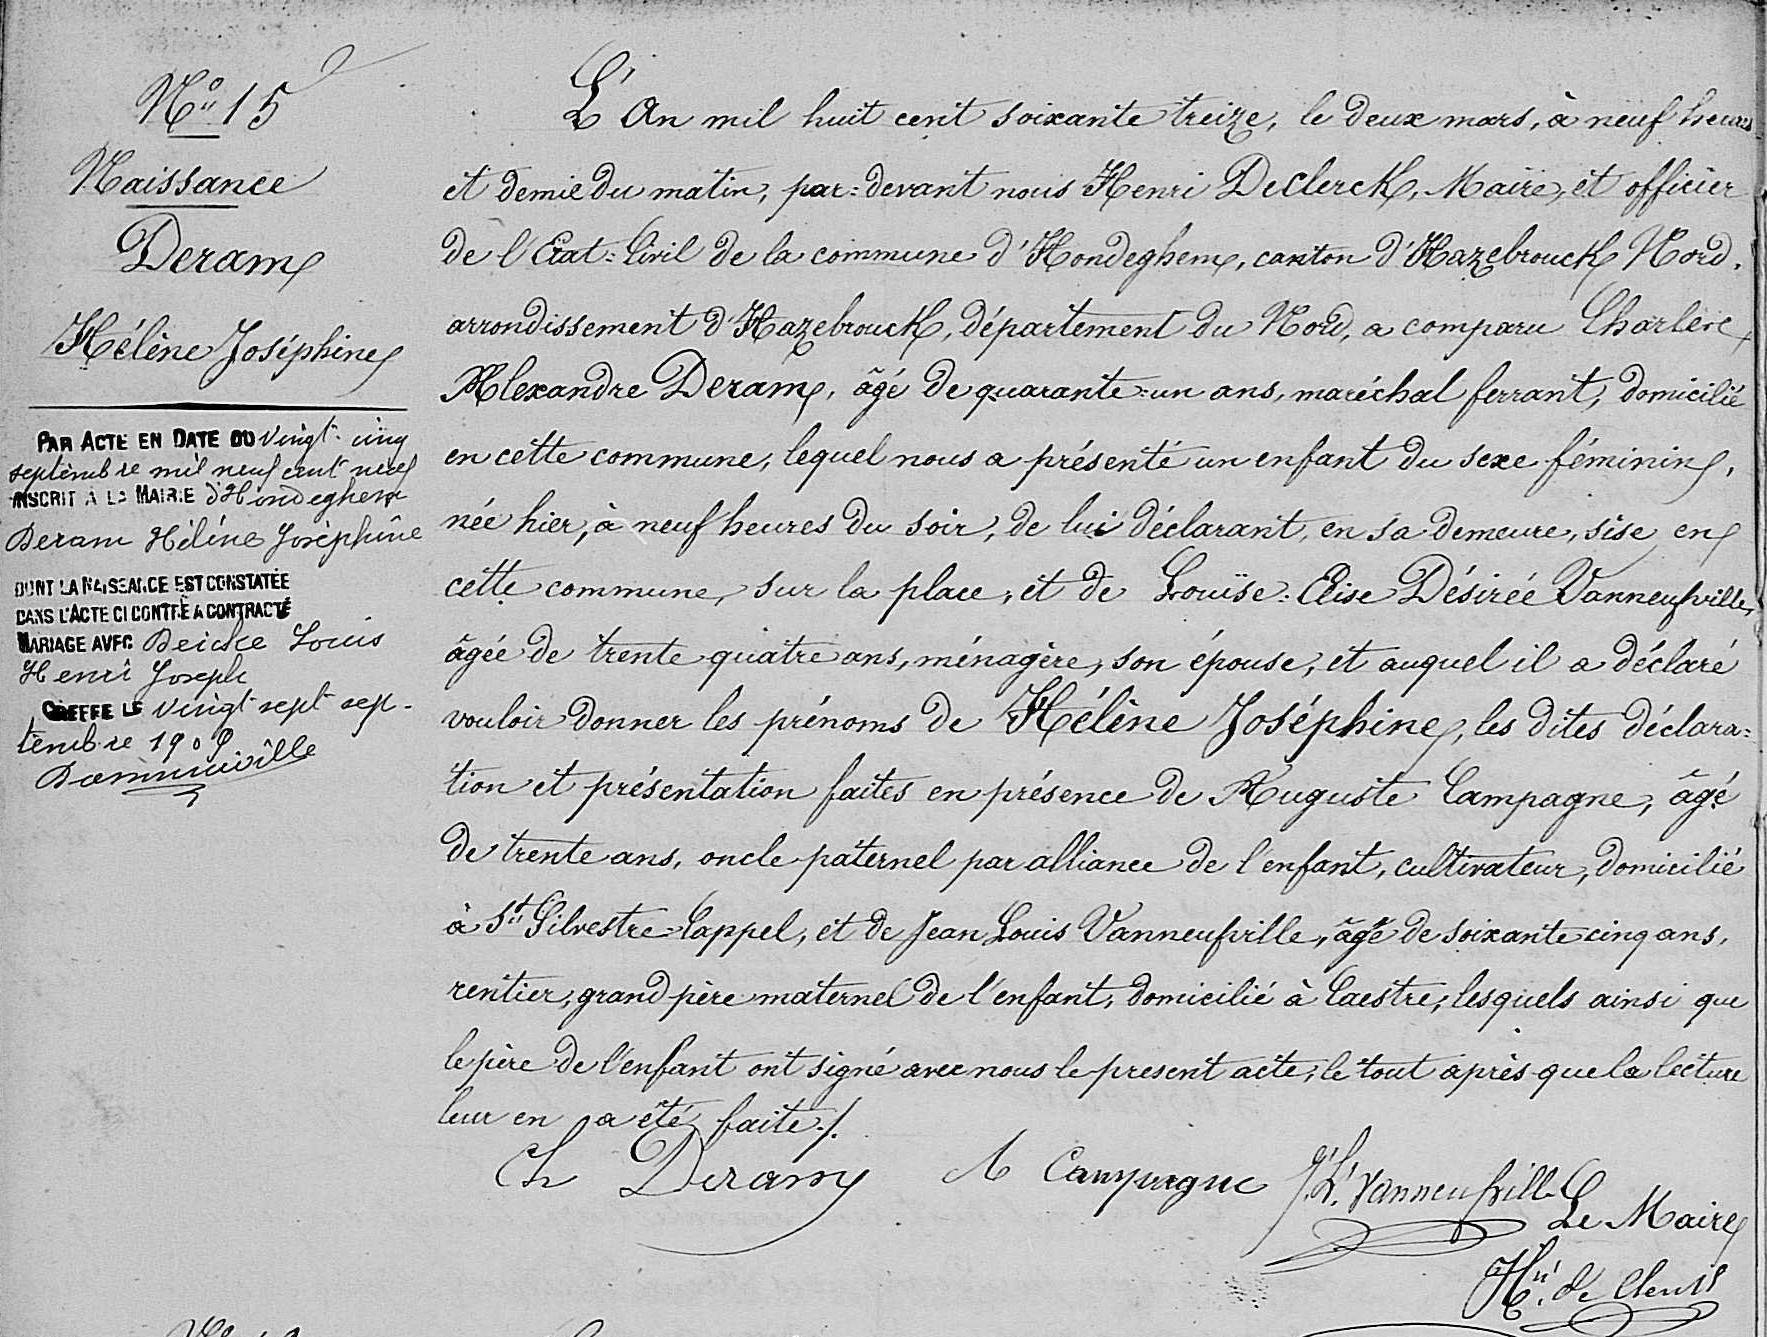 No 15
Naissance
Deram
Hélène Joséphine
PAR ACTE EN DATE DU vingt-cinq
septembre mil neuf cent neuf
INSCRIT A LA MAIRIE d'Hondeghem
Deram Hélène Joséphine
DONT LA NAISSANCE EST CONSTATÉE
DANS L'ACTE CI CONTRE A CONTRACTÉ
MARIAGE AVEC Louis
Henri Joseph
GREFFE LE vingt sept sep-
tembre 1909
L'An mil huit cent soixante treize, le deux mars, à neuf heures
et demie du matin, par=devant nous Henri Declerck, Maire, et officier
de l'Etat=Civil de la commune d'Hondeghem, canton d'Hazebrouck Nord,
arrondissement d'Hazebrouck, département du Nord, a comparu Charles
Alexandre Deram, âgé de quarante=un ans, maréchal ferrant, domicilié
en cette commune, lequel nous a présenté un enfant du sexe féminin,
née hier, à neuf heures du soir, de lui déclarant, en sa demeure, sise en
cette commune, sur la place, et de Louise=Elise Désirée Vanneufville,
âgée de trente quatre ans, ménagère, son épouse, et auquel il a déclaré
vouloir donner les prénoms de Hélène Joséphine, les dites déclara=
tion et présentation faites en présence de Auguste Campagne, âgé
de trente ans, oncle paternel par alliance de l'enfant, cultivateur, domicilié
à St Silvestre=Cappel, et de Jean Louis Vanneufville, âgé de soixante cinq ans,
rentier, grand père maternel de l'enfant, domicilié à Caestre, lesquels ainsi que
le père de l'enfant ont signé avec nous le present acte, le tout après que la lecture
leur en a été faite ./.
Ch Deram A Campagne J. L. Vanneufville
Le Maire
Hri de Clerck